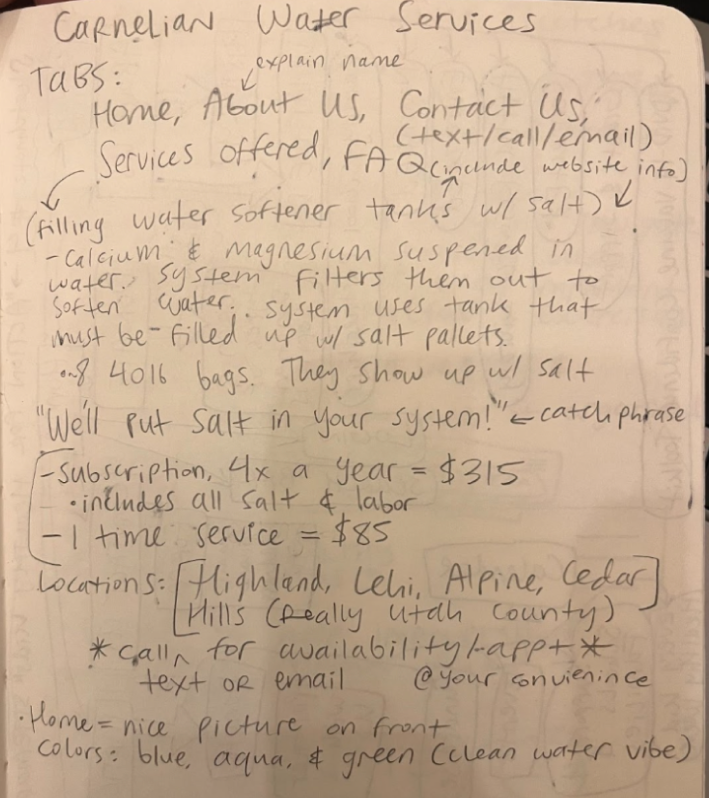 Carnelian Water Services
TABS:
explain name
Home, About Us, Contact Us,
(text/call/email)
Services offered, FAQ (include website info)
(filling water softener tanks w/ salt)
- Calcium & magnesium suspened in
water. System filters them out to
soften water. System uses tank that
must be filled up w/ salt pallets.
8 40lb bags. They show up w/ salt
"We'll put salt in your system!" ← catch phrase
- Subscription, 4x a year = $315
• includes all salt & labor
- 1 time service = $85
Locations: [Highland, Lehi, Alpine, Cedar
Hills (Really Utah County)]
* call for availability/-appt *
text or email @ your convienince
• Home = nice picture on front
colors: blue, aqua, & green (clean water vibe)